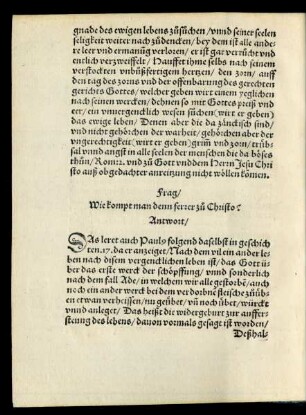 gnade des ewigen lebens zůsůchen / vnnd seiner seelen
seligkeit weiter nach zůdencken / bey dem ist alle ande
re leer vnd ermanũg verloren / er ist gar verrůcht vnd
entlich verzweiffelt / Hauffet ihme selbs nach seinem
verstockten vnbůßfertigem hertzen / den zorn / auff
den tag des zorns vnd der offenbarung des gerechten
gerichts Gottes / welcher geben wirt einem yeglichen
nach seinen wercken / dehnen so mit Gottes preiß vnd
eer / ein vnuergenclich wesen sůchen (wirt er geben)
das ewige leben / Denen aber die da zänckisch sind /
vnd nicht gehörchen der warheit / gehörchen aber der
vngerechtigkeit (wirt er geben) grim̃ vnd zorn / trůb-
sal vnnd angst in alle seelen der menschen die da böses
thůn / Rom. 2. vnd zů Gott vnd dem Herrn Jesu Chri
sto auß obgedachter anreitzung nicht wöllen kom̃en.
Frag /
Wie kompt man denn ferrer zů Christo?
Antwort /
DAs leret auch Paulꝰ folgend daselbst in geschich
ten. 17. da er anzeiget / Nach dem vilem ander le
ben nach disem vergencklichen leben ist / das Gott ü-
ber das erste werck der schöpffung / vnnd sonderlich
nach dem fall Ade / in welchem wir alle gestorbẽ / auch
noch ein ander werck bei dem verdorbnẽ fleische zůüb-
en etwan verheissen / nu geůbet / vñ noch übet / würckt
vnnd anleget / Das heißt die widergeburt zur auffer-
stehung des lebens / dauon vormals gesagt ist worden /
Deßhal-